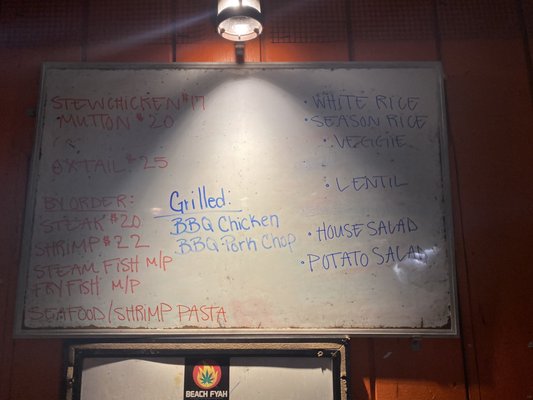 STEW CHICKEN $17
MUTTON $20
OXTAIL $25
BY ORDER:
STEAK $20
SHRIMP $22
STEAM FISH M/P
FRY FISH M/P
SEAFOOD/SHRIMP PASTA
Grilled:
BBQ Chicken
BBQ Pork Chop
• WHITE RICE
• SEASON RICE
• VEGGIE
• LENTIL
• HOUSE SALAD
• POTATO SALAD
BEACH FYAH